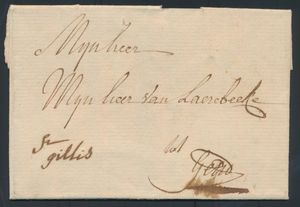 Mijn heer
Mijn heer van Laerebeeke
St
gillis
tot